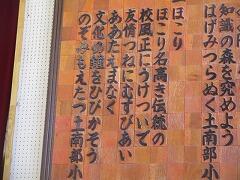 知識の森を究めよう
はげみつらぬく土南部小
一ほこり
ほこり名高き伝統の
校風正にうけついで
友情つねにむすびあい
ああたえまなく
文化の鐘をひびかそう
のぞみもえたつ土南部小